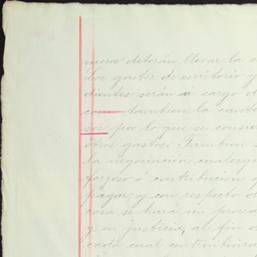 meros deberán llevar la
Los gastos de escritorio y
dientes serán a cargo d
como tambien la cante
sor por lo que se consid
otros gastos. Tambien
la negociacion cualesqu
forzoso ó contribucion q
pagar, y con respecto á
casa se hará un prorra
y en justicia, al fin d
cada cual contribuirá